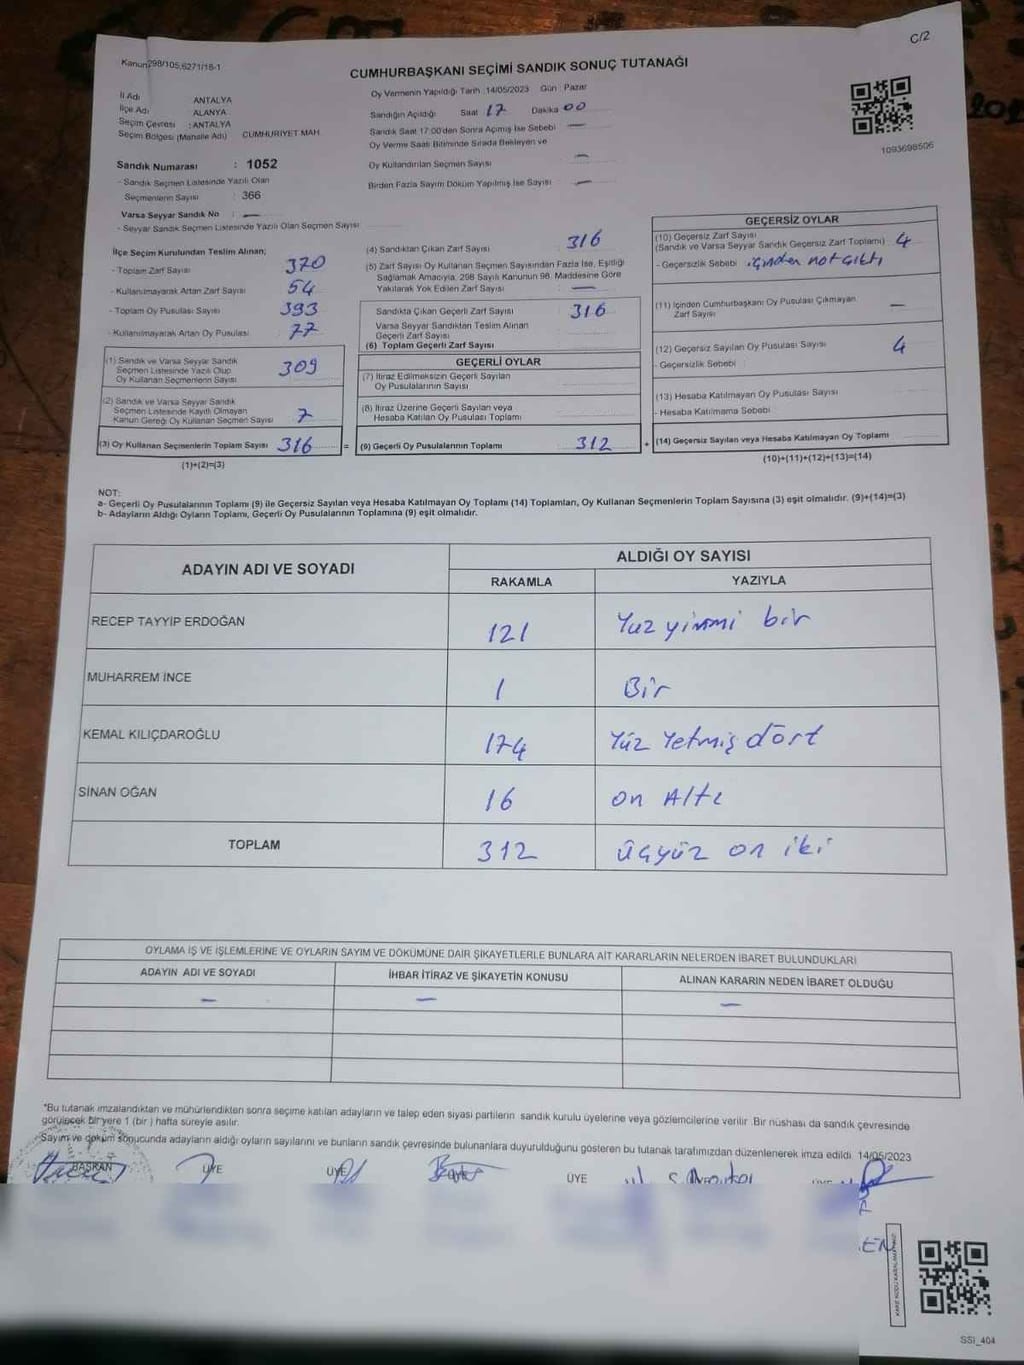 C/2
Kanun298/105,6271/18-1
CUMHURBAŞKANI SEÇİMİ SANDIK SONUÇ TUTANAĞI
İl Adı ANTALYA
İlçe Adı ALANYA
Seçim Çevresi : ANTALYA
Seçim Bölgesi (Mahalle Adı) CUMHURİYET MAH.
Sandık Numarası : 1052
- Sandık Seçmen Listesinde Yazılı Olan
Seçmenlerin Sayısı : 366
Varsa Seyyar Sandık No : —
- Seyyar Sandık Seçmen Listesinde Yazılı Olan Seçmen Sayısı
Oy Vermenin Yapıldığı Tarih :14/05/2023 Gün : Pazar
Sandığın Açıldığı Saat 17 Dakika 00
Sandık Saat 17:00'den Sonra Açımış İse Sebebi —
Oy Verme Saati Bitiminde Sırada Bekleyen ve
Oy Kullandırılan Seçmen Sayısı —
Birden Fazla Sayım Döküm Yapılmış İse Sayısı —
1093698506
İlçe Seçim Kurulundan Teslim Alınan;
- Toplam Zarf Sayısı 370
- Kullanılmayarak Artan Zarf Sayısı 54
- Toplam Oy Pusulası Sayısı 393
- Kullanılmayarak Artan Oy Pusulası 77
(1) Sandık ve Varsa Seyyar Sandık
Seçmen Listesinde Yazılı Olup
Oy Kullanan Seçmenlerin Sayısı 309
(2) Sandık ve Varsa Seyyar Sandık
Seçmen Listesinde Kayıtlı Olmayan
Kanun Gereği Oy Kullanan Seçmen Sayısı 7
(3) Oy Kullanan Seçmenlerin Toplam Sayısı 316 =
(1)+(2)=(3)
(4) Sandıktan Çıkan Zarf Sayısı 316
(5) Zarf Sayısı Oy Kullanan Seçmen Sayısından Fazla İse, Eşitliği
Sağlamak Amacıyla, 298 Sayılı Kanunun 98. Maddesine Göre
Yakılarak Yok Edilen Zarf Sayısı —
Sandıkta Çıkan Geçerli Zarf Sayısı 316
Varsa Seyyar Sandıktan Teslim Alınan
Geçerli Zarf Sayısı
(6) Toplam Geçerli Zarf Sayısı
GEÇERLİ OYLAR
(7) İtiraz Edilmeksizin Geçerli Sayılan
Oy Pusulalarının Sayısı
(8) İtiraz Üzerine Geçerli Sayılan veya
Hesaba Katılan Oy Pusulası Toplamı
(9) Geçerli Oy Pusulalarının Toplamı 312 +
GEÇERSİZ OYLAR
(10) Geçersiz Zarf Sayısı
(Sandık ve Varsa Seyyar Sandık Geçersiz Zarf Toplamı) 4
- Geçersizlik Sebebi içinden not çıktı
(11) İçinden Cumhurbaşkanı Oy Pusulası Çıkmayan
Zarf Sayısı —
(12) Geçersiz Sayılan Oy Pusulası Sayısı 4
- Geçersizlik Sebebi :
(13) Hesaba Katılmayan Oy Pusulası Sayısı
- Hesaba Katılmama Sebebi
(14) Geçersiz Sayılan veya Hesaba Katılmayan Oy Toplamı
(10)+(11)+(12)+(13)=(14)
NOT:
a- Geçerli Oy Pusulalarının Toplamı (9) ile Geçersiz Sayılan veya Hesaba Katılmayan Oy Toplamı (14) Toplamları, Oy Kullanan Seçmenlerin Toplam Sayısına (3) eşit olmalıdır. (9)+(14)=(3)
b- Adayların Aldığı Oyların Toplamı, Geçerli Oy Pusulalarının Toplamına (9) eşit olmalıdır.
ADAYIN ADI VE SOYADI ALDIĞI OY SAYISI
RAKAMLA YAZIYLA
RECEP TAYYİP ERDOĞAN 121 Yuz yirmi bir
MUHARREM İNCE 1 Bir
KEMAL KILIÇDAROĞLU 174 Yüz Yetmiş dört
SİNAN OĞAN 16 on Altı
TOPLAM 312 üçyüz on iki
OYLAMA İŞ VE İŞLEMLERİNE VE OYLARIN SAYIM VE DÖKÜMÜNE DAİR ŞİKAYETLERLE BUNLARA AİT KARARLARIN NELERDEN İBARET BULUNDUKLARI
ADAYIN ADI VE SOYADI İHBAR İTİRAZ VE ŞİKAYETİN KONUSU ALINAN KARARIN NEDEN İBARET OLDUĞU
— — —
*Bu tutanak imzalandıktan ve mühürlendikten sonra seçime katılan adayların ve talep eden siyasi partilerin sandık kurulu üyelerine veya gözlemcilerine verilir .Bir nüshası da sandık çevresinde
görülecek bir yere 1 (bir ) hafta süreyle asılır.
Sayım ve döküm sonucunda adayların aldığı oyların sayılarını ve bunların sandık çevresinde bulunanlara duyurulduğunu gösteren bu tutanak tarafımızdan düzenlenerek imza edildi. 14/05/2023
BAŞKAN ÜYE ÜYE ÜYE ÜYE
SSİ_404